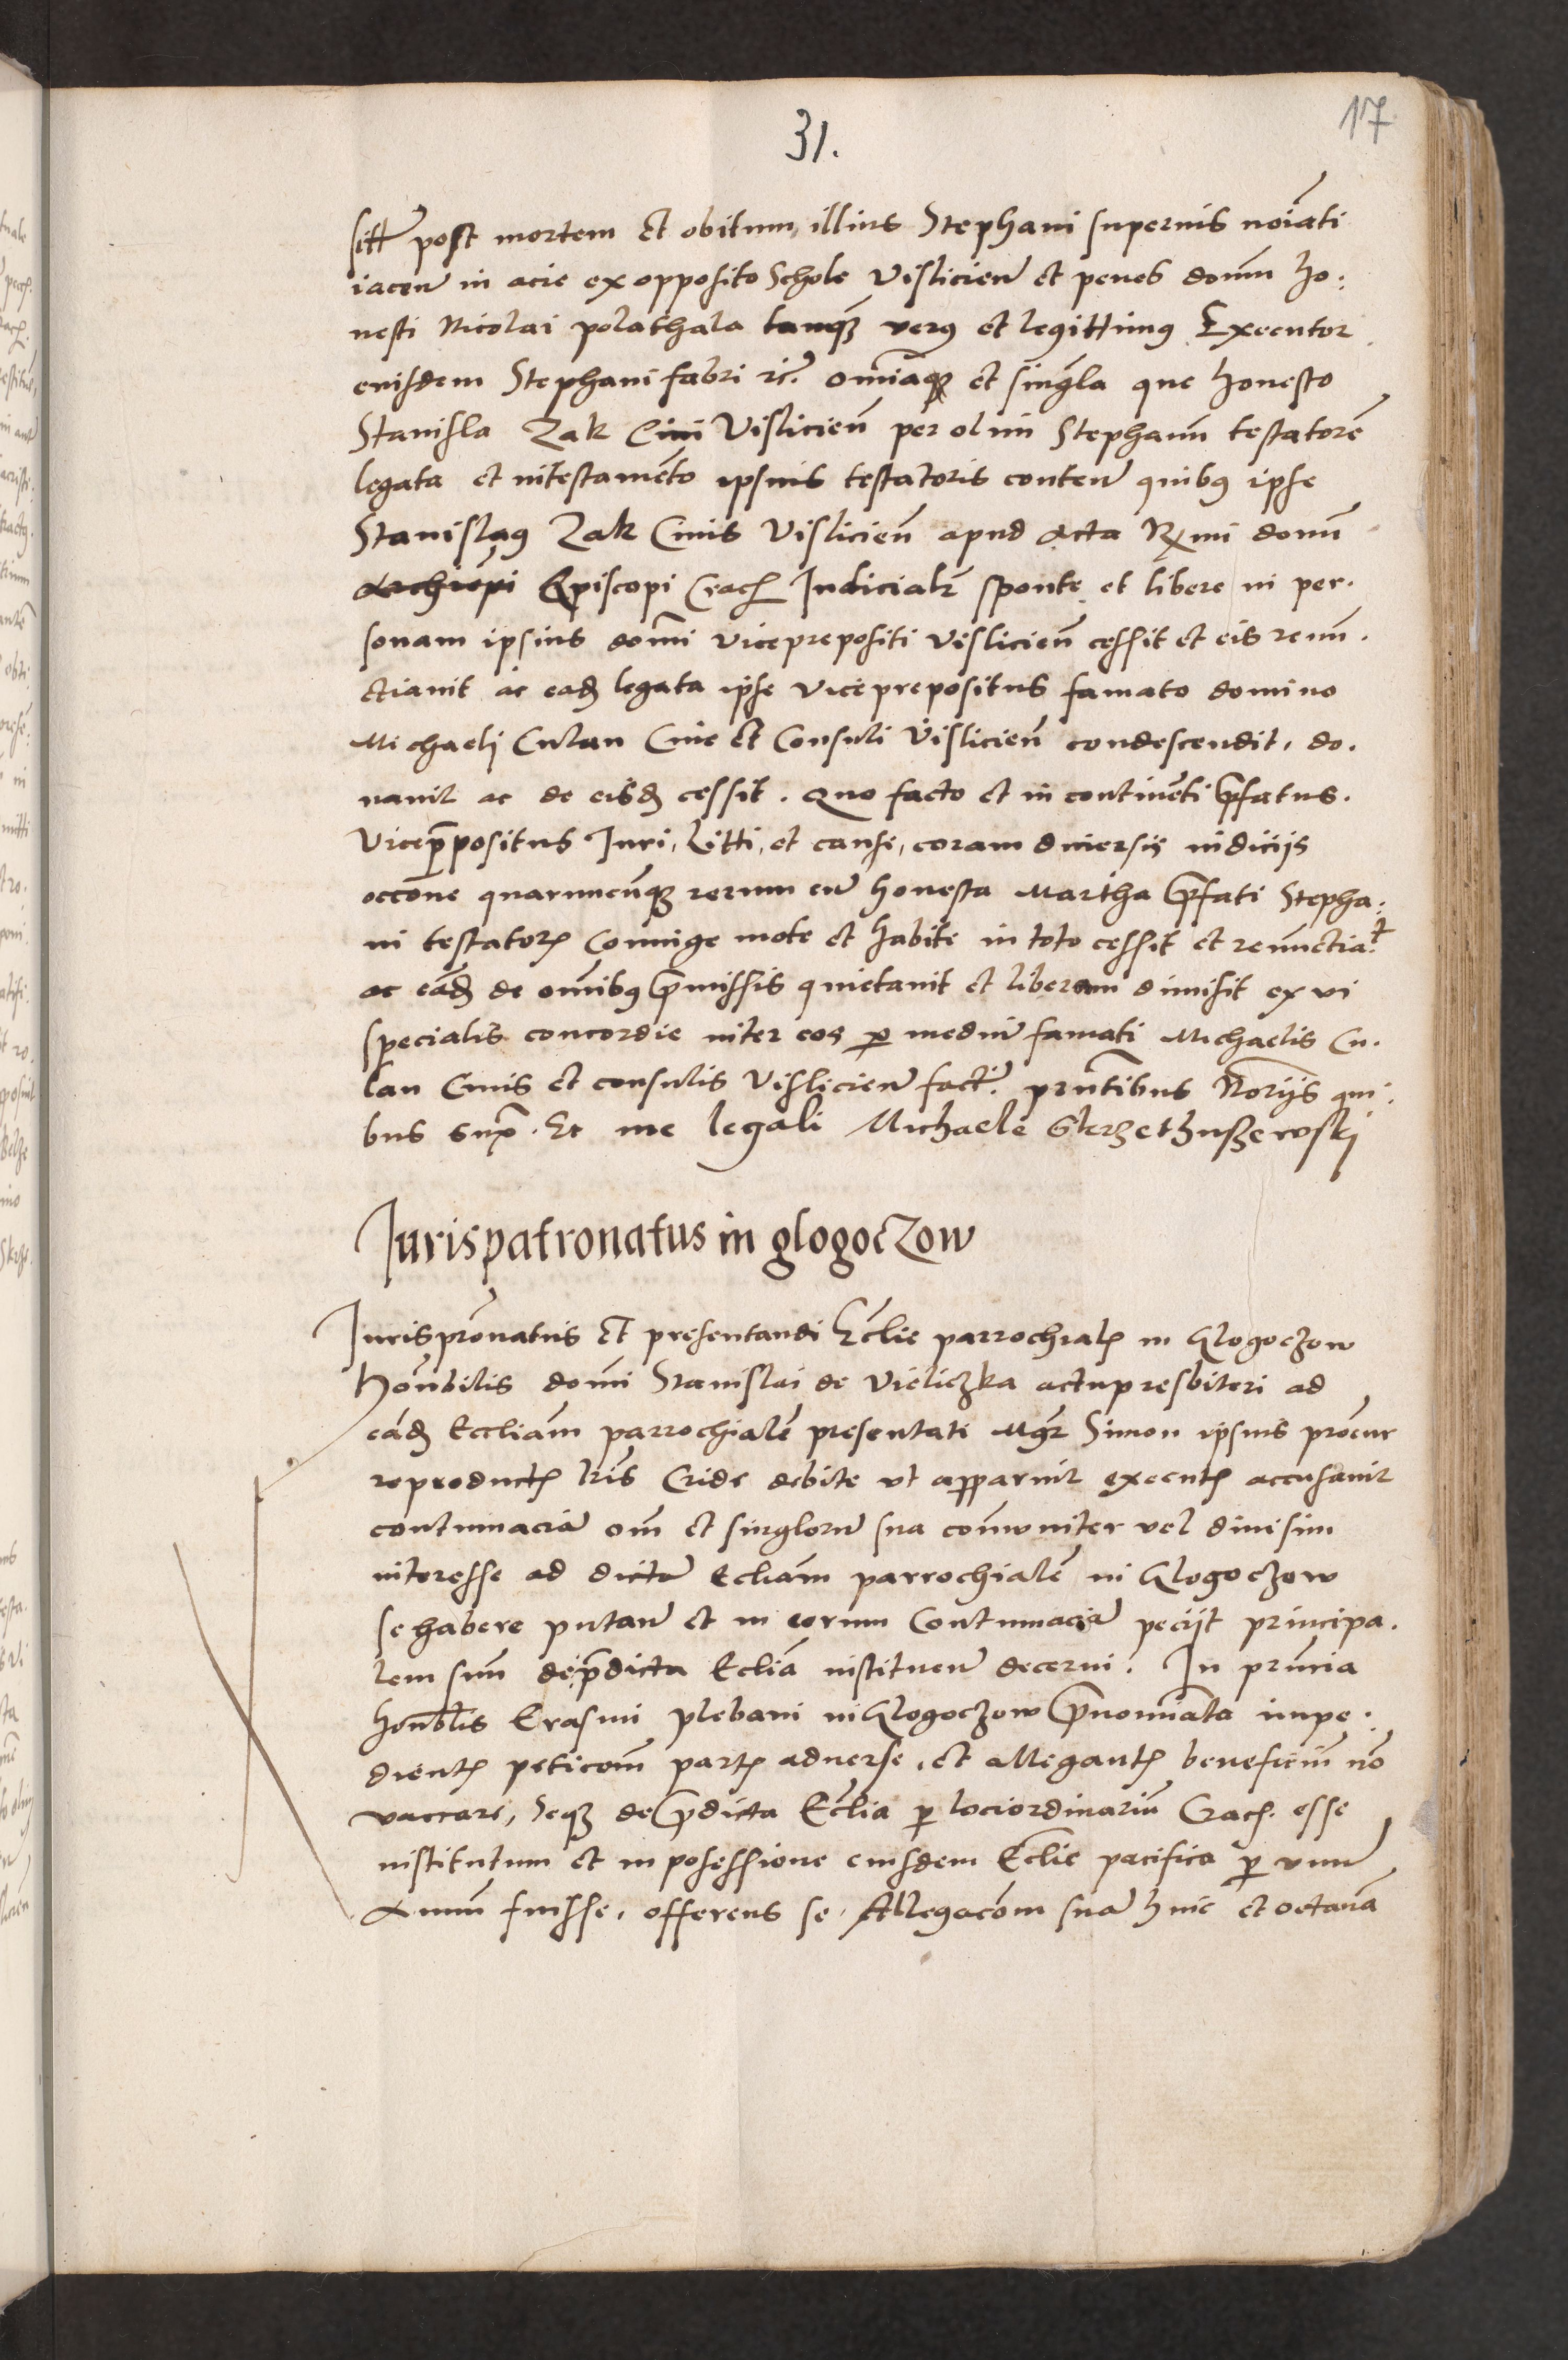 17
31.
sittr post mortem et obitum, illius Stephani superius noiati
iacen in acie ex opposito Schole Vislicien et penes domu ho:
nesti Nicolai polathala tanq3 verus et legittimus Executor
eiusdem Stephani fabri etc. omiaq3 et singla que honesto
Stanisla Zak Civi Vislicien per olim Stephanu testatore
legata et in testamento ipsius testatoris conten quibus ipse
Stanislaus Zak Civis Vislicien apud Acta Rxmi domi
Archiepi Episcopi Crac Judicialr sponte et libere in per.
sonam ipsius domi viceprepositi vislicien cessit et eis renu.
ctiavit ac ead legata ipse viceprepositus famato domino
Michaeli Culan Civi et Consuli Vislicien condescendit, do.
navit ac de eisd cessit. Quo facto et in continenti pfatus.
Viceppositus Juri, Litti, et cause, coram diversis iudiciis
occone quarumcunq3 rerum cu honesta Martha pfati Stepha:
ni testatoris Coniuge mote et habite in toto cessit et renuctiat
ac ead de omibus pmissis quietavit et liberam dimisit ex vi
specialis concordie inter eos p mediu famati Michaelis Cu.
lan Civis et consulis Vislicien fact. pntibus Noriis qui
bus supra. Et me legali Michaele
Jurispatronatus in glogoczow
Jurispronatus et presentandi Eclie parrochialis in Glogoczow
Honobilis domi Stanislai de Vieliczka actu presbiteri ad
ead Eccliam parrochiale presentati Mgr Simon ipsius procur
reproductis lris Cride debite ut apparuit executis accusavit
contumacia om et singloru sua comuniter vel divisim
interesse ad dicta Ecliam parrochiale in Glogoczow
se habere putan et in eorum Contumacia peciit principa.
lem suu de pdicta Eclia instituen decerni. In pruncia
honoblis Erasmi plebani in Glogoczow pnominata impe.
dientis peticom partis adverse, et allegantis beneficiu no
vaccare, Seq3 de pdicta Eclia p loci ordinariu Crac. esse
institutum et in posessione eiusdem Eclie pacifica p unu
Annu fuisse, offerens se Allegacom sua hinc et octava